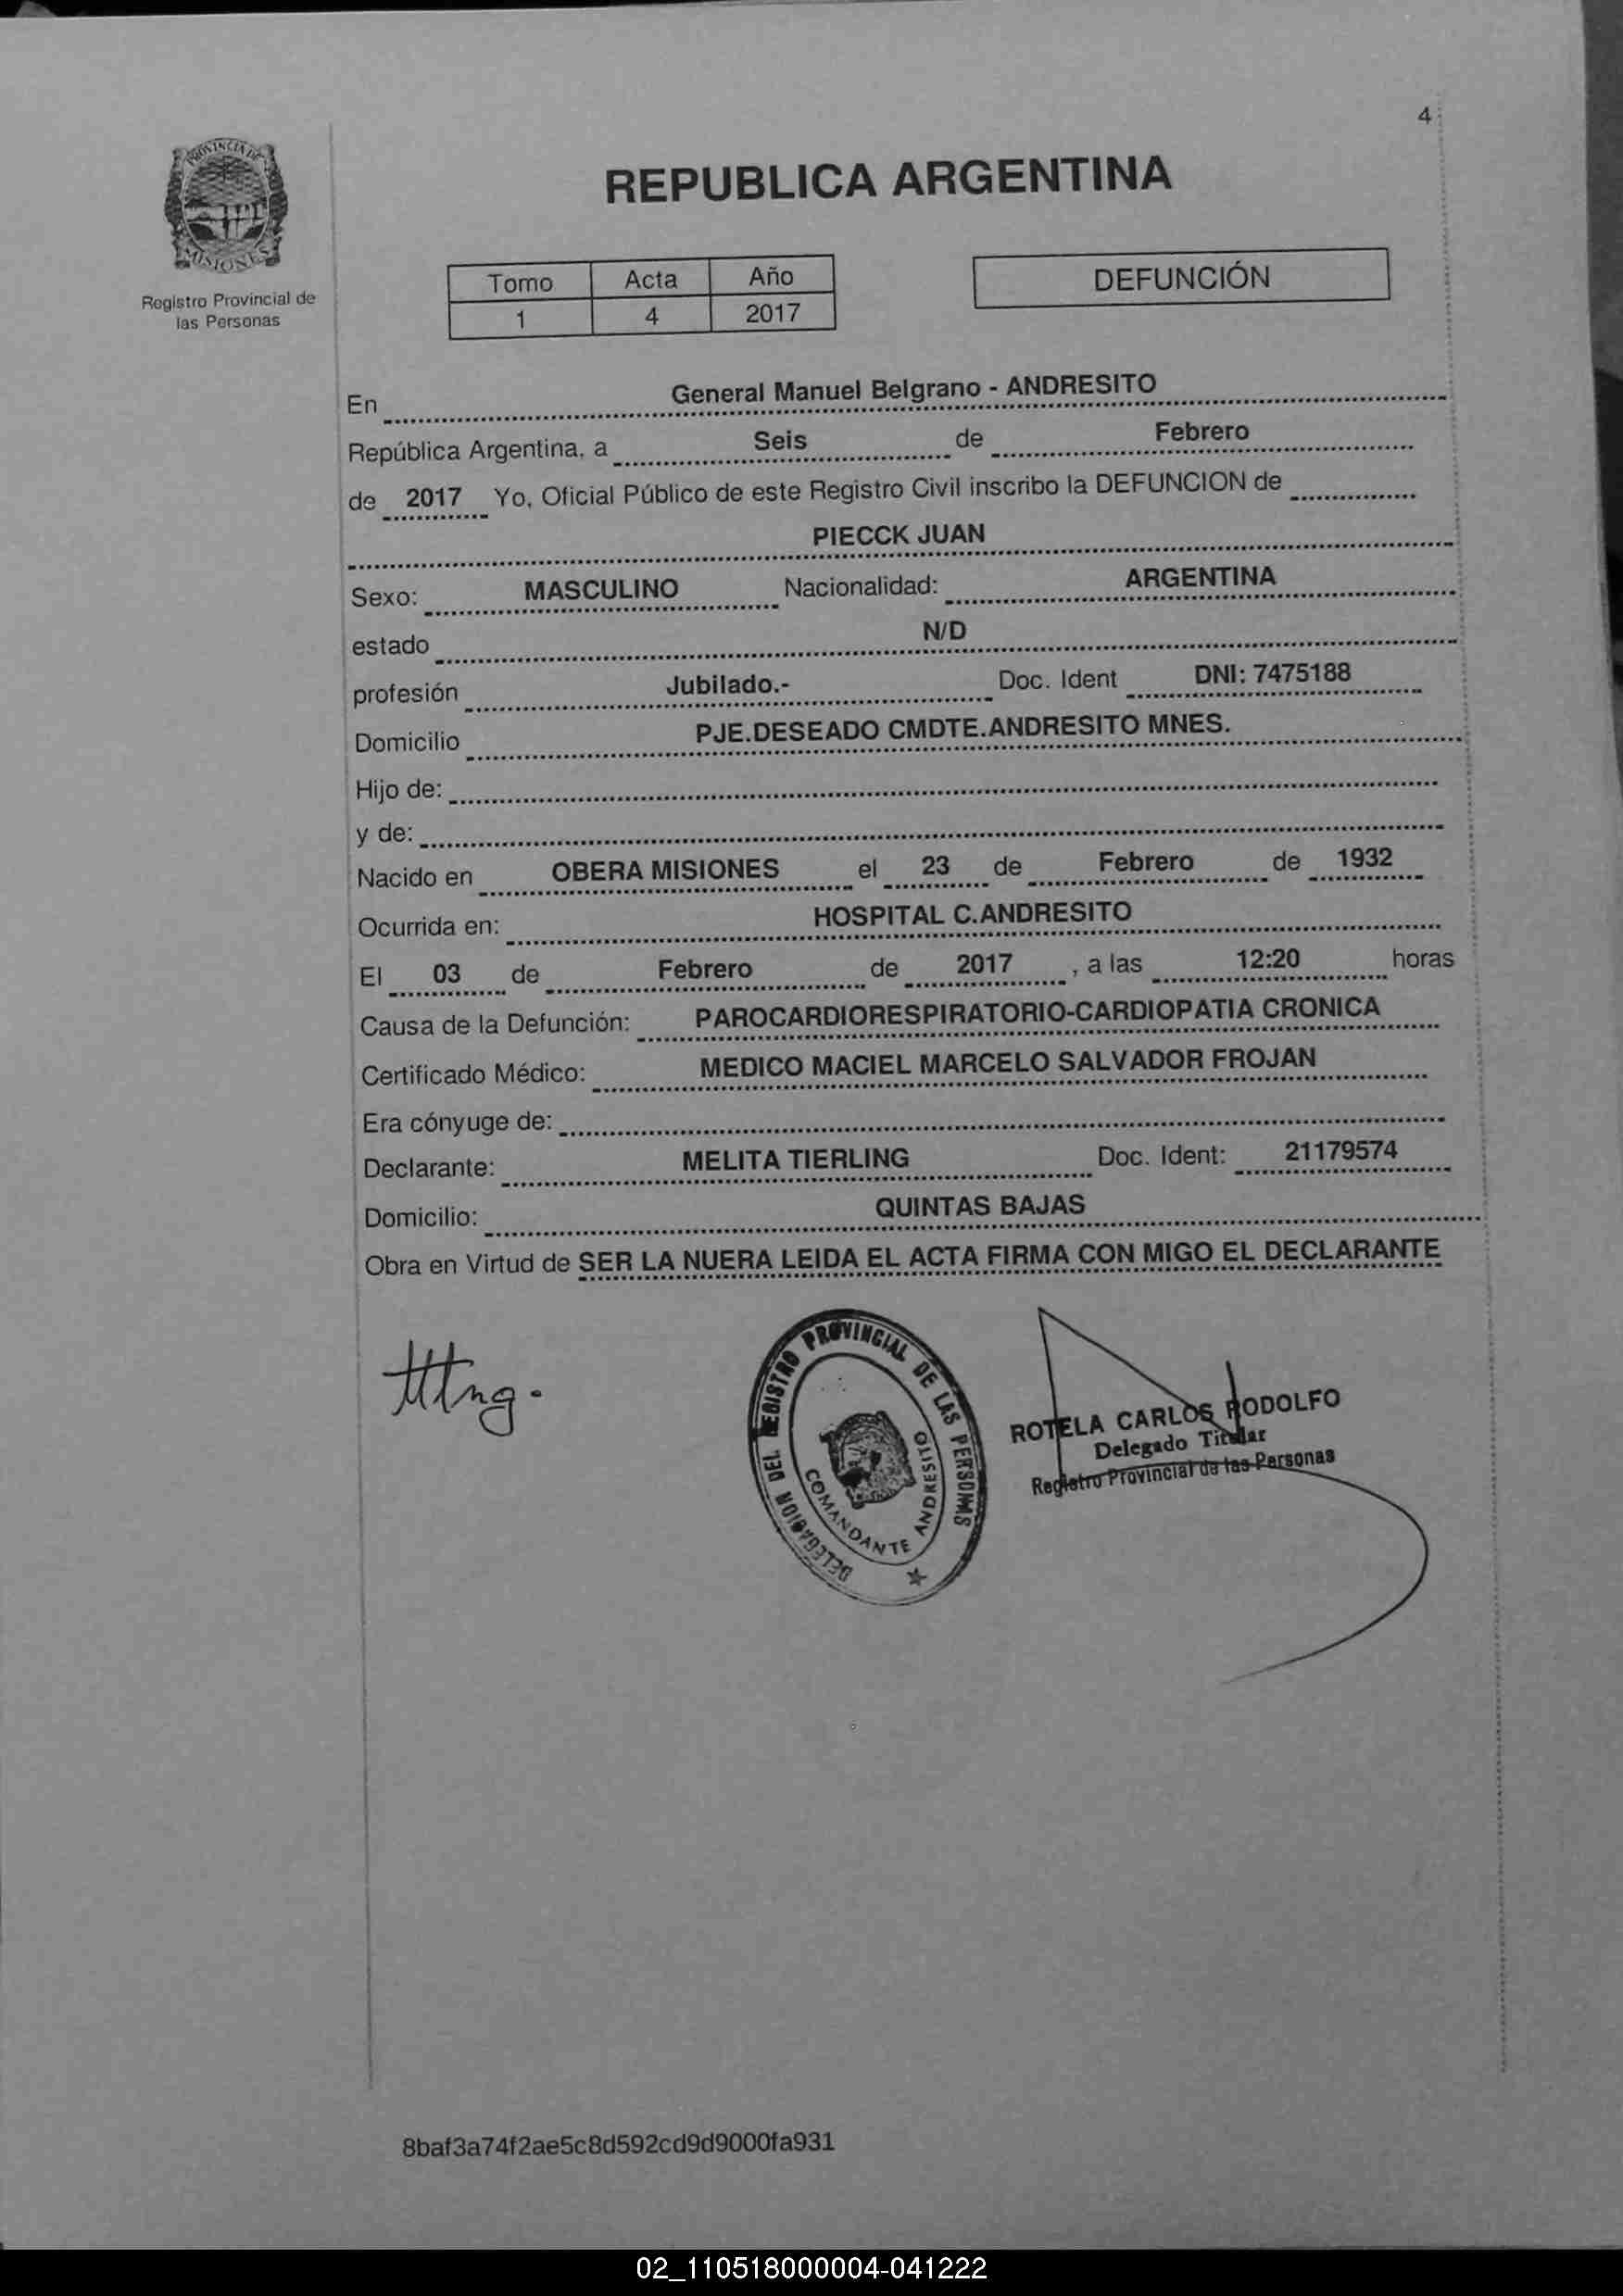 4
PROVINCIA DE
MISIONES
Registro Provincial de
las Personas
REPUBLICA ARGENTINA
Tomo Acta Año
1 4 2017
DEFUNCIÓN
En General Manuel Belgrano - ANDRESITO
República Argentina, a Seis de Febrero
de 2017 Yo, Oficial Público de este Registro Civil inscribo la DEFUNCION de
PIECCK JUAN
Sexo: MASCULINO Nacionalidad: ARGENTINA
estado N/D
profesión Jubilado.- Doc. Ident DNI: 7475188
Domicilio PJE.DESEADO CMDTE.ANDRESITO MNES.
Hijo de:
y de:
Nacido en OBERA MISIONES el 23 de Febrero de 1932
Ocurrida en: HOSPITAL C.ANDRESITO
El 03 de Febrero de 2017 , a las 12:20 horas
Causa de la Defunción: PAROCARDIORESPIRATORIO-CARDIOPATIA CRONICA
Certificado Médico: MEDICO MACIEL MARCELO SALVADOR FROJAN
Era cónyuge de:
Declarante: MELITA TIERLING Doc. Ident: 21179574
Domicilio: QUINTAS BAJAS
Obra en Virtud de SER LA NUERA LEIDA EL ACTA FIRMA CON MIGO EL DECLARANTE
DELEGACION DEL REGISTRO PROVINCIAL DE LAS PERSONAS
COMANDANTE ANDRESITO
ROTELA CARLOS RODOLFO
Delegado Titular
Registro Provincial de las Personas
8baf3a74f2ae5c8d592cd9d9000fa931
02_110518000004-041222